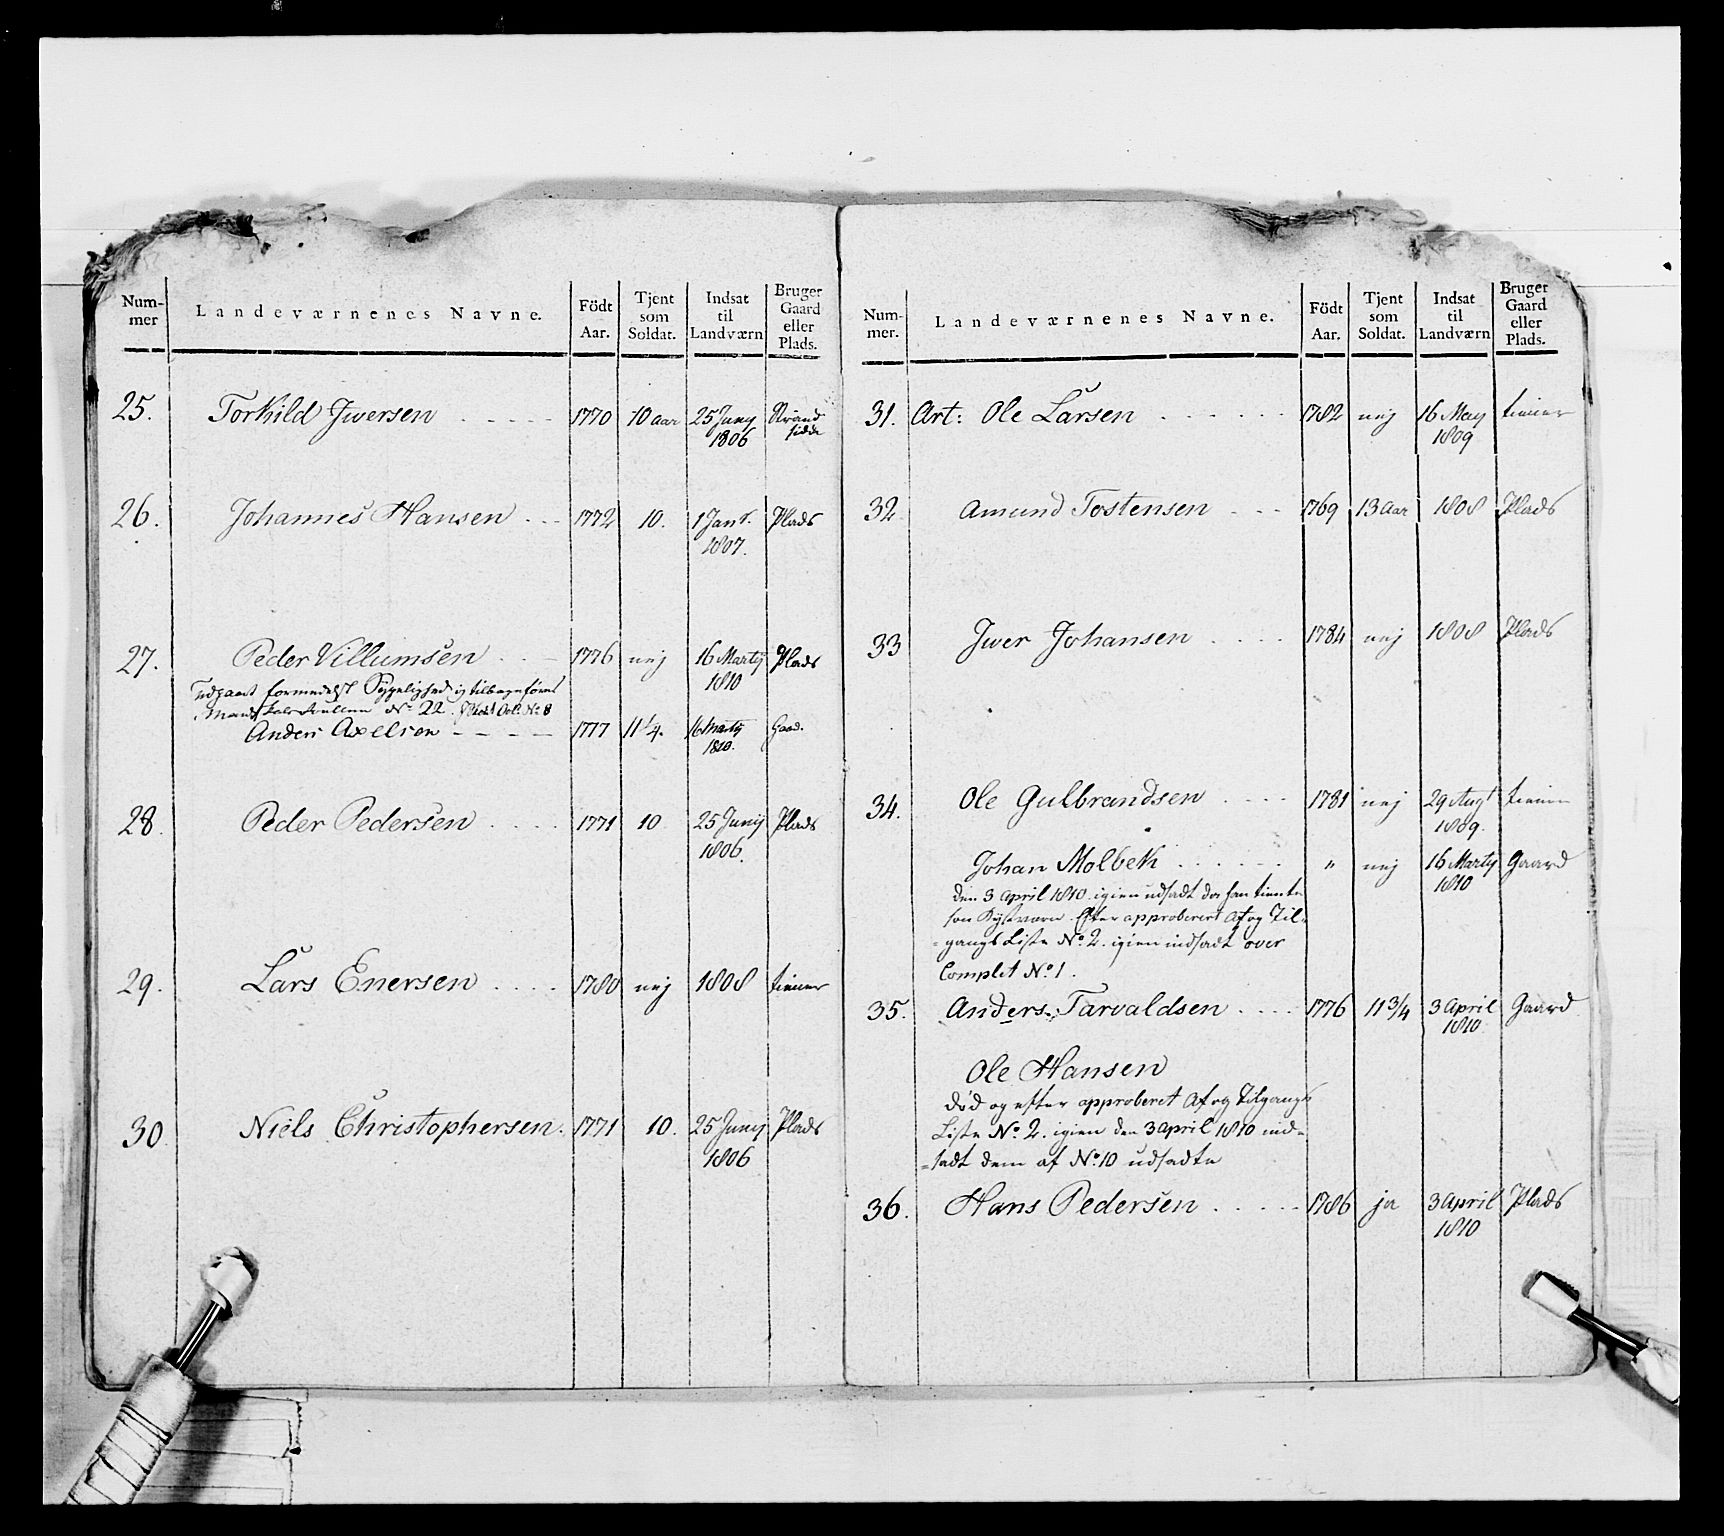 Num-
mer
Landeværnenes Navne.
Födt
Aar.
Tjent
som
Soldat.
Indsat
til
Landværn
Bruger
Gaard
eller
Plads.
25. Torkild Jwersen 1770 10 aar 25 Juny Strand
1806 sidde
26. Johannes Hansen 1772 10. 1 Janr. Plads
1807.
27. Peder Villumsen 1776 nej 16 Martij Plads
1810
Udgaaet formedelst Sygelighed
No 22
Anders Axelsen 1777 11 1/4. 16 Martij Gaard.
1810.
28. Peder Pedersen 1771 10 25 Junij Plads
1806.
29. Lars Enersen 1780 nej 1808 tiener
30 Niels Christophersen. 1771 10. 25 Juny Plads
1806
Num-
mer.
Landeværnenes Navne.
Födt
Aar.
Tjent
som
Soldat.
Indsat
til
Landværn
Bruger
Gaard
eller
Plads.
31. Art: Ole Larsen 1782 nej 16 May tiener
1809
32 Amund Tostensen 1769 13 aar 1808 Plads
33 Jwer Johansen 1784 nej 1808 Plads
34. Ole Gulbrandsen 1781 nej 29 Augt tiener
1809.
Johan Molbek " nej 16 Martij Gaard
1810
den 3 april 1810 igien udsadt da han tiente
som Kystværn. Efter approberet Af og Til-
-gangs Liste No. 2. igien indsadt over
Complet No. 1.
35. Anders Tarvaldsen 1776 11 3/4 3 April Gaard
1810
Ole Hansen
død og efter approberet Af og Tilgangs
Liste No. 2. igien den 3 april 1810 ind-
-sadt dem af No. 10 udsadte
36. Hans Pedersen 1786 ja 3 April Plads
1810